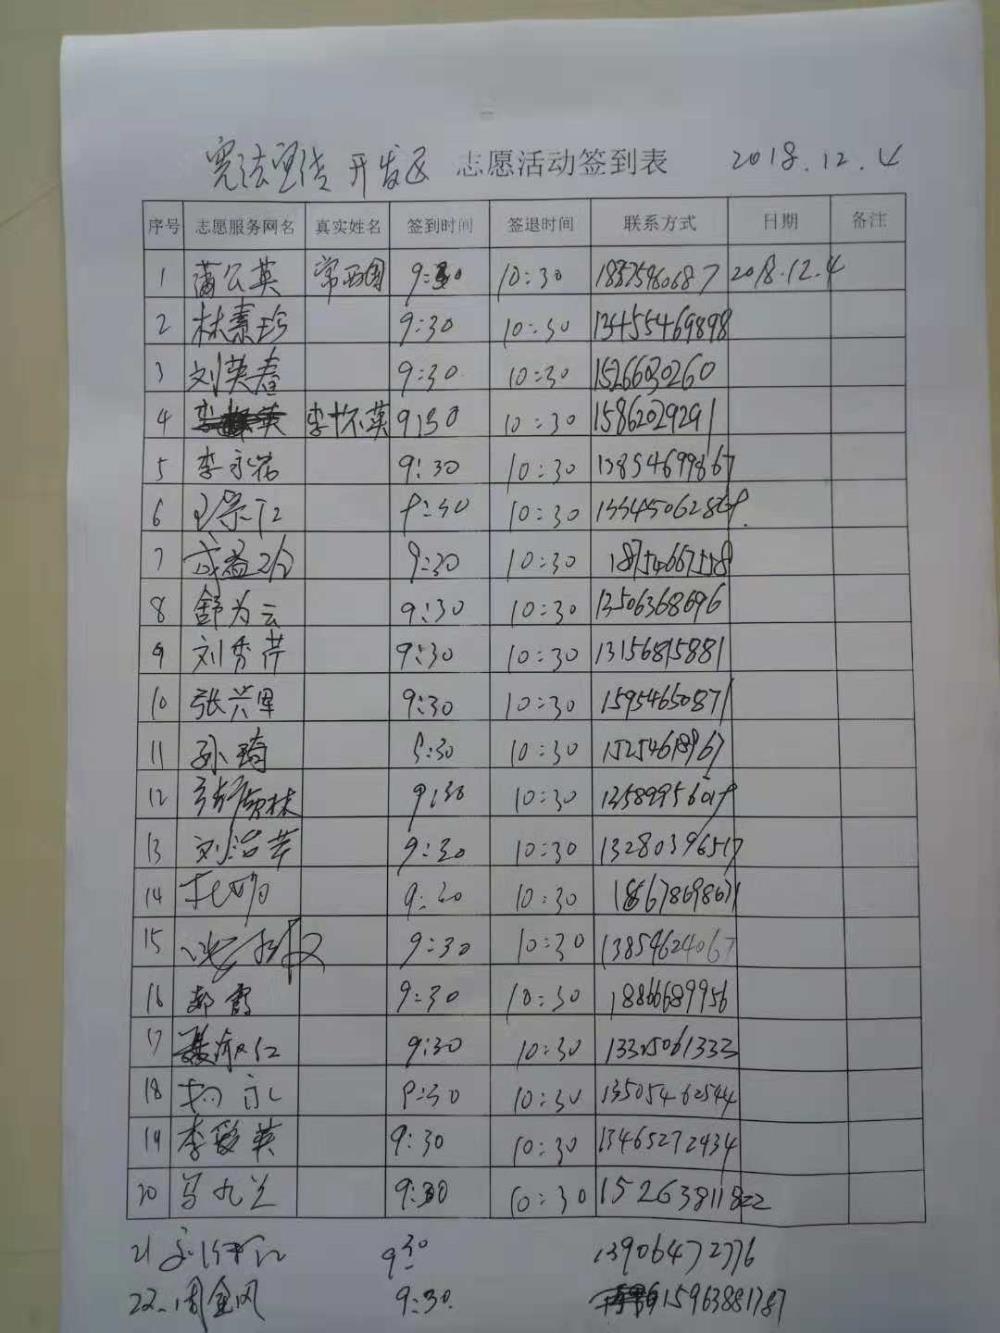 宪法宣传 开发区 志愿活动签到表 2018.12.4
序号 志愿服务网名 真实姓名 签到时间 签退时间 联系方式 日期 备注
1 蒲公英 常西国 9:30 10:30 18325960687 2018.12.4
2 林素珍 9:30 10:30 13455469898
3 刘英春 9:30 10:30 15266030260
4 李怀英 9:30 10:30 15862029291
5 李永岩 9:30 10:30 13854699867
6 9:30 10:30
7 成益 9:30 10:30
8 舒为云 9:30 10:30 13506368696
9 刘秀芹 9:30 10:30 13156815881
10 张兴军 9:30 10:30 15954650871
11 孙琦 9:30 10:30 15254618967
12 9:30 10:30
13 刘治苹 9:30 10:30 13280396517
14 9:30 10:30 18667869867
15 9:30 10:30 13854624067
16 郝霞 9:30 10:30 18866689956
17 9:30 10:30 13305061333
18 杨永 9:30 10:30 13505462544
19 李爱英 9:30 10:30 13465272934
20 马九兰 9:30 10:30 15263811822
21 9:30 13906472776
22 周金凤 9:30. 15963881787